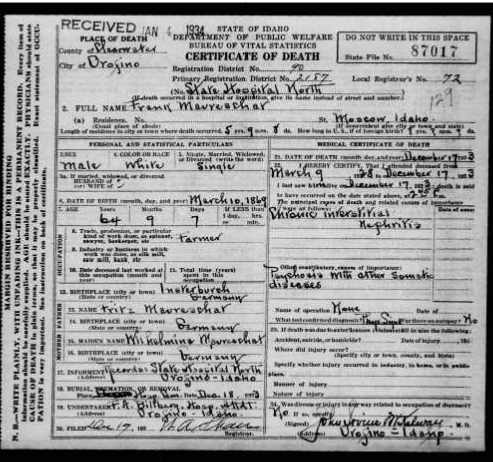 RECEIVED JAN 4 1934
STATE OF IDAHO
DEPARTMENT OF PUBLIC WELFARE
BUREAU OF VITAL STATISTICS
CERTIFICATE OF DEATH
DO NOT WRITE IN THIS SPACE
State File No. 87017
PLACE OF DEATH
County of Clearwater
City of Orofino
Registration District No. 40
Primary Registration District No. 2187
Local Registrar's No. 72
(No. State Hospital North
(If death occurred in a hospital or institution, give its name instead of street and number.)
129
2. FULL NAME Frank Mavreschat
(a) Residence. No. St. Moscow, Idaho.
(Usual place of abode)
Length of residence in city or town where death occurred. 5 yrs. 9 mos. 8 ds. How long in U. S., if of foreign birth? yrs. mos. ds.
PERSONAL AND STATISTICAL PARTICULARS
3. SEX
4. COLOR OR RACE
5. Single, Married, Widowed, or Divorced (write the word)
Male White Single
5a. If married, widowed, or divorced
HUSBAND of
(or) WIFE of
6. DATE OF BIRTH (month, day, and year) March 10, 1869
7. AGE Years Months Days If LESS than 1 day, hrs. or min.
64 9 7
OCCUPATION
8. Trade, profession, or particular kind of work done, as spinner, sawyer, bookkeeper, etc. Farmer
9. Industry or business in which work was done, as silk mill, saw mill, bank, etc
10. Date deceased last worked at this occupation (month and year)
11. Total time (years) spent in this occupation
12. BIRTHPLACE (city or town) Insterburch
(State or country) Germany
FATHER
13. NAME Fritz Mavreschat
14. BIRTHPLACE (city or town)
(State or country) Germany
MOTHER
15. MAIDEN NAME Wilhelmina Mavreschat
16. BIRTHPLACE (city or town)
(State or country) Germany
17. INFORMANT Records State Hospital North
Orofino - Idaho
18. BURIAL, CREMATION, OR REMOVAL
Place Hosp Cem. Date Dec. 18, 1933
19. UNDERTAKER Hosp. Attdt.
Orofino - Idaho.
20. FILED Dec 19, 193
Registrar.
MEDICAL CERTIFICATE OF DEATH
21. DATE OF DEATH (month, day, and year) December 17 1933
22. I HEREBY CERTIFY, That I attended deceased from
March 9 28 December 17 1933
I last saw him on December 17, 1933, death is said
to have occurred on the date stated above, at
The principal cause of death and related causes of importance
Chronic interstitial
Nephritis
Other contributory causes of importance:
Psychosis with other somatic
diseases
Name of operation None
What test confirmed diagnosis? Was there an autopsy? No
23. If death was due to external causes (violence) fill in also the following:
Accident, suicide, or homicide? Date of injury
Where did injury occur?
(Specify city or town, county, and State)
Specify whether injury occurred in industry, in home, or in public place.
Manner of injury
Nature of injury
24. Was disease or injury in any way related to occupation of deceased?
No If so, specify
Orofino - Idaho